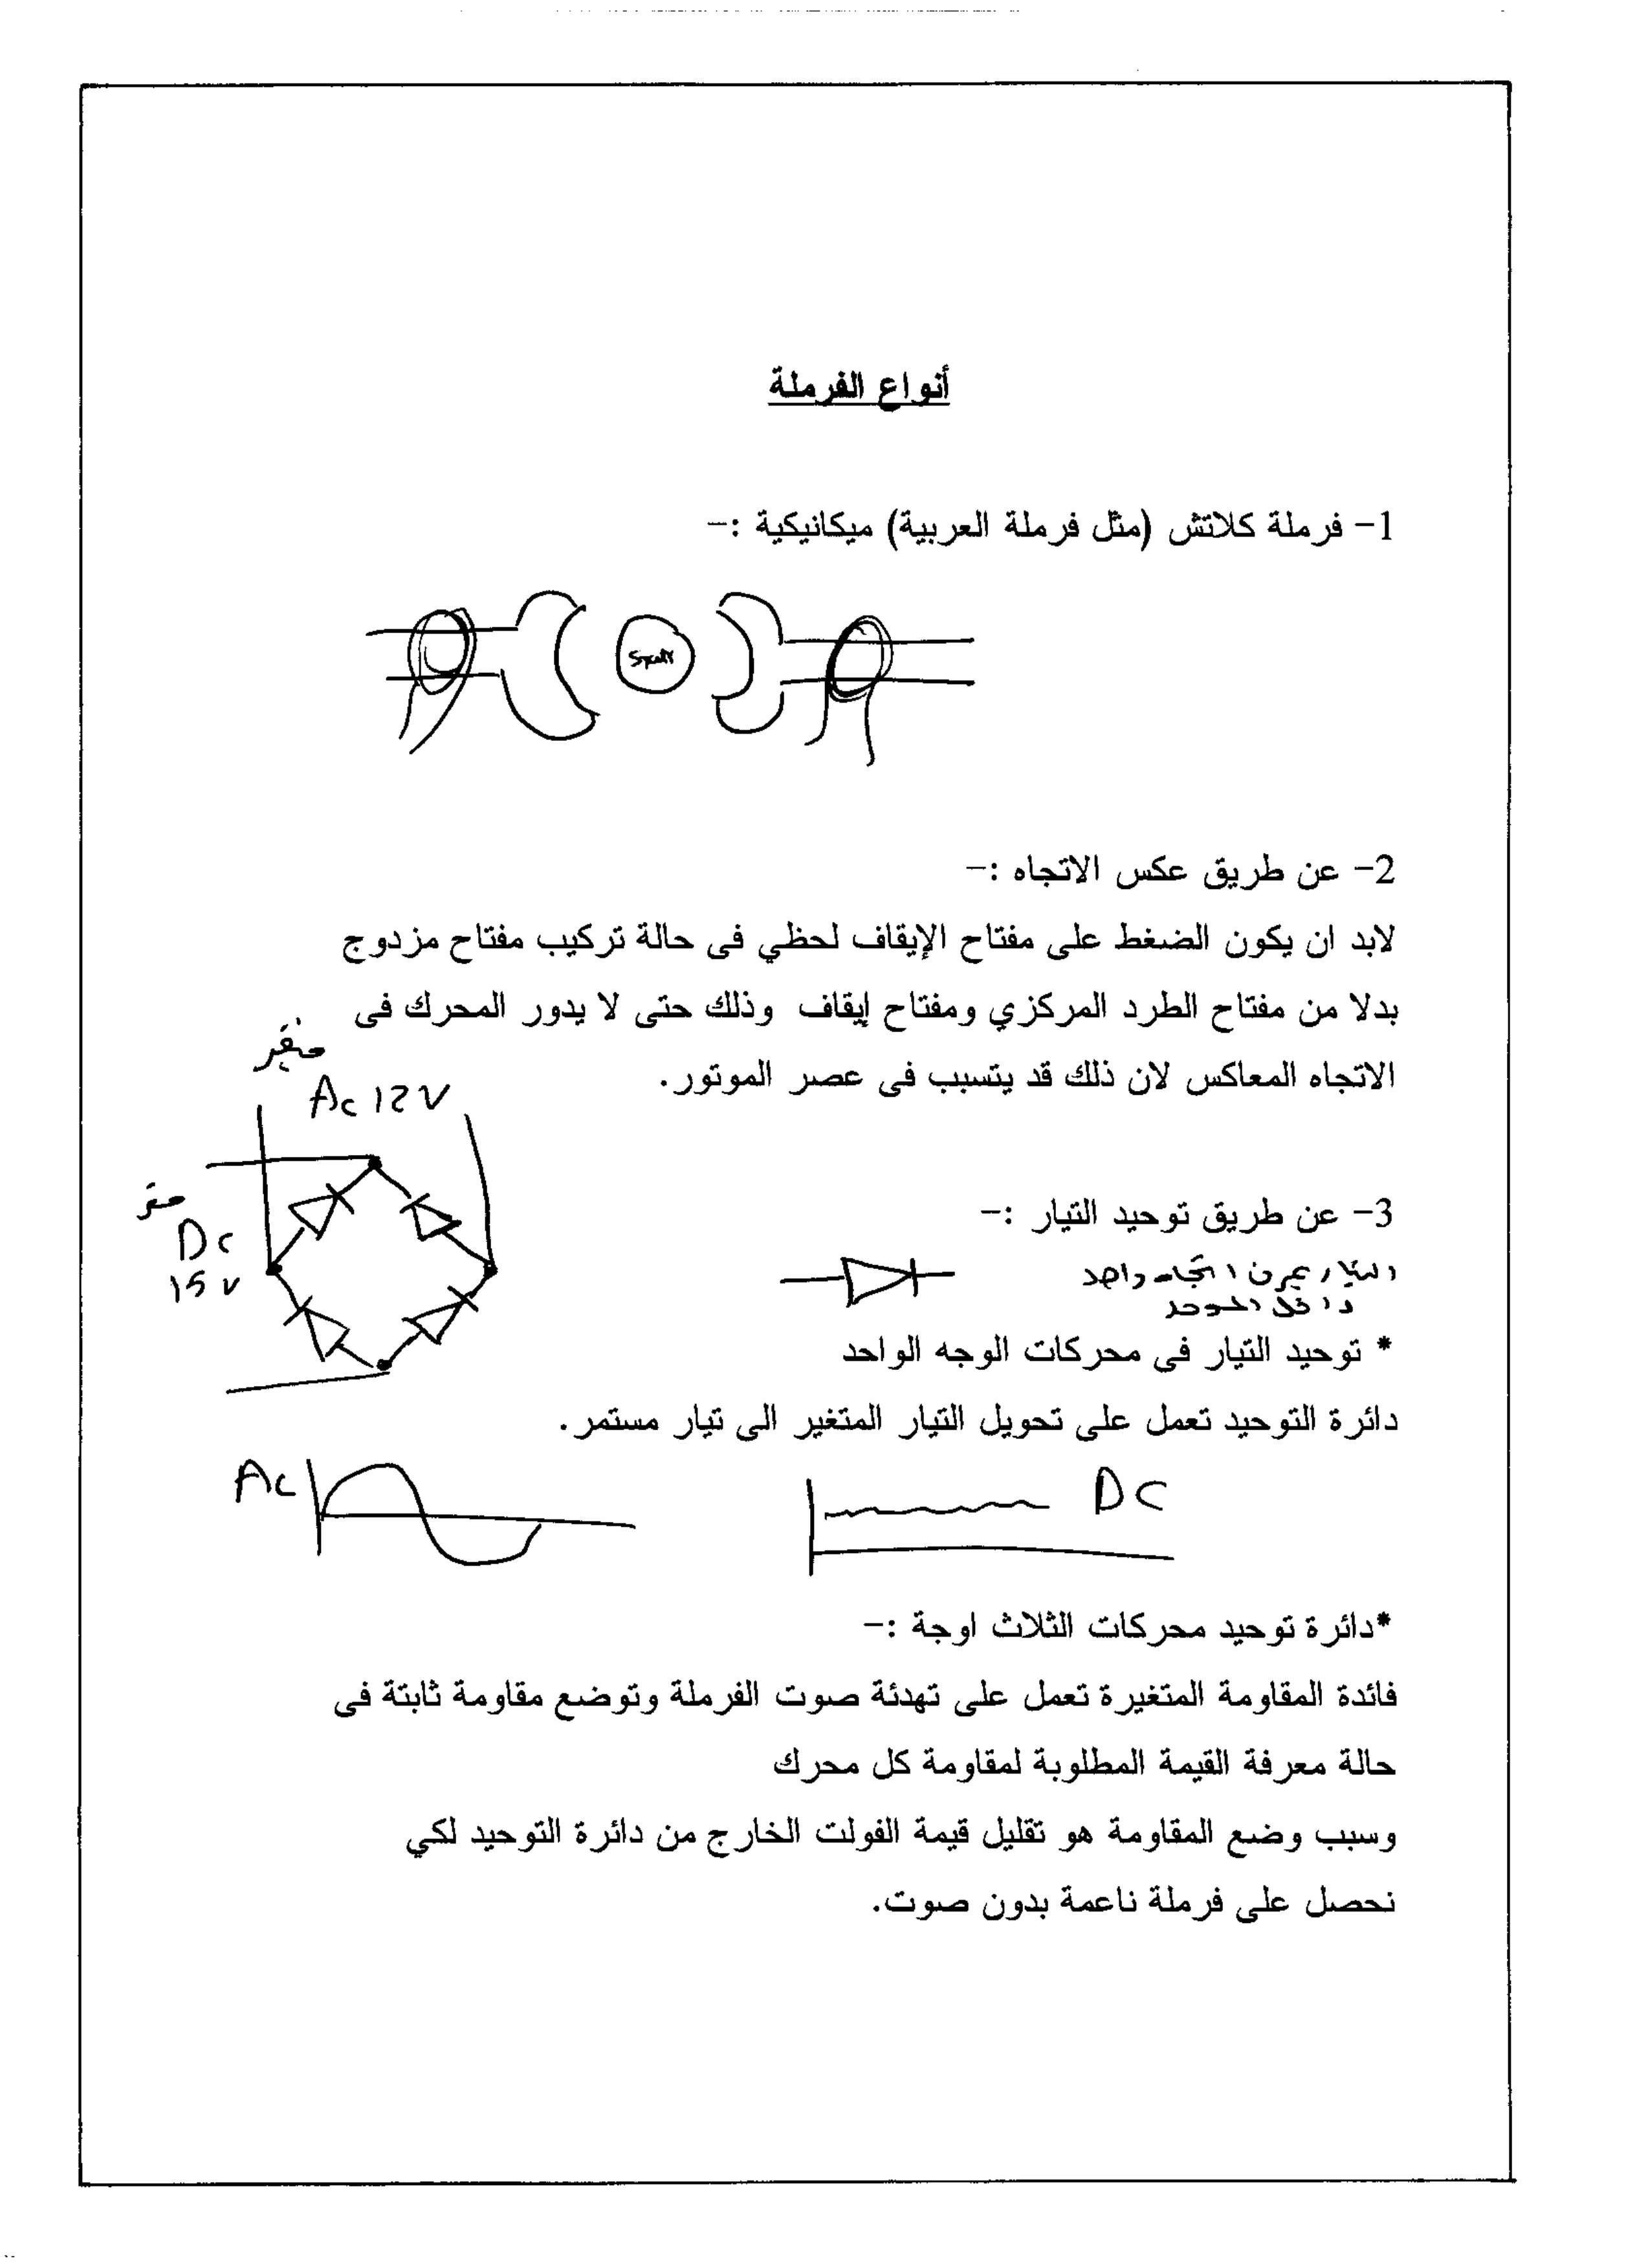 أنواع الفرملة
1- فرملة كلاتش (مثل فرملة العربية) ميكانيكية :-
2- عن طريق عكس الاتجاه :-
لابد ان يكون الضغط على مفتاح الإيقاف لحظي فى حالة تركيب مفتاح مزدوج
بدلا من مفتاح الطرد المركزي ومفتاح إيقاف وذلك حتى لا يدور المحرك فى
الاتجاه المعاكس لان ذلك قد يتسبب فى عصر الموتور.
Ac 12 V
Dc
15 v
3- عن طريق توحيد التيار :-
التيار يمر فى اتجاه واحد
داخل الموحد
* توحيد التيار فى محركات الوجه الواحد
دائرة التوحيد تعمل على تحويل التيار المتغير الى تيار مستمر.
DC
Ac
*دائرة توحيد محركات الثلاث اوجة :-
فائدة المقاومة المتغيرة تعمل على تهدئة صوت الفرملة وتوضع مقاومة ثابتة فى
حالة معرفة القيمة المطلوبة لمقاومة كل محرك
وسبب وضع المقاومة هو تقليل قيمة الفولت الخارج من دائرة التوحيد لكي
نحصل على فرملة ناعمة بدون صوت.